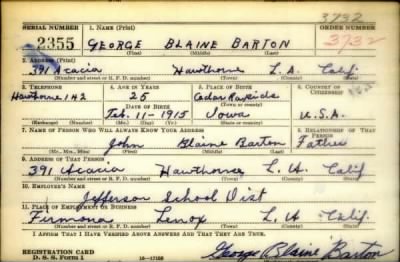 3732
SERIAL NUMBER 1. NAME (Print) ORDER NUMBER
2355 GEORGE BLAINE BARTON 3732
(First) (Middle) (Last)
2. ADDRESS (Print)
391 Acacia Hawthorne L.A. Calif
(Number and street or R. F. D. number) (Town) (County) (State)
3. TELEPHONE 4. AGE IN YEARS 5. PLACE OF BIRTH 6. COUNTRY OF CITIZENSHIP
Hawthorne 142 25 Cedar Rapids
DATE OF BIRTH (Town or county)
Feb. 11-1915 Iowa U.S.A.
(Exchange) (Number) (Mo.) (Day) (Yr.) (State or country)
7. NAME OF PERSON WHO WILL ALWAYS KNOW YOUR ADDRESS 8. RELATIONSHIP OF THAT PERSON
John Blaine Barton Father
(Mr., Mrs., Miss) (First) (Middle) (Last)
9. ADDRESS OF THAT PERSON
391 Acacia Hawthorne L.A. Calif
(Number and street or R. F. D. number) (Town) (County) (State)
10. EMPLOYER'S NAME
Jefferson School Dist
11. PLACE OF EMPLOYMENT OR BUSINESS
Firmona Lenox L.A. Calif.
(Number and street or R. F. D. number) (Town) (County) (State)
I AFFIRM THAT I HAVE VERIFIED ABOVE ANSWERS AND THAT THEY ARE TRUE.
REGISTRATION CARD
D. S. S. Form 1 16-17105 George Blaine Barton